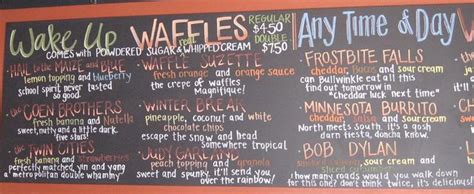 Wake Up
WAFFLES
real
REGULAR
$4.50
DOUBLE
$7.50
COMES WITH POWDERED SUGAR & WHIPPED CREAM
HAIL to the MAIZE and BLUE
lemon topping and blueberry
school spirit never tasted
so good
the COEN BROTHERS
fresh banana and Nutella
sweet, nutty and a little dark
five stars!
the TWIN CITIES
fresh banana and strawberries
perfectly matched, yin and yang
a metropolitan double whammy!
WAFFLE SUZETTE
fresh orange and orange sauce
the crepe of waffles
Magnifique!
WINTER BREAK
pineapple, coconut and white
chocolate chips
escape the snow and head
somewhere tropical
JUDY GARLAND
peach topping and granola
sweet and spunky. it'll send you
over the rainbow!
Any Time of Day
FROSTBITE FALLS
cheddar, and sour cream
can Bullwinkle eat all this?
find out tomorrow in
"Cheddar luck next time"
MINNESOTA BURRITO
cheddar, salsa and sour cream
North meets South. it's a gosh
darn fiesta, doncha know.
BOB DYLAN
sour cream
how many roads would you walk down
for this? don't think twice, it's delicious